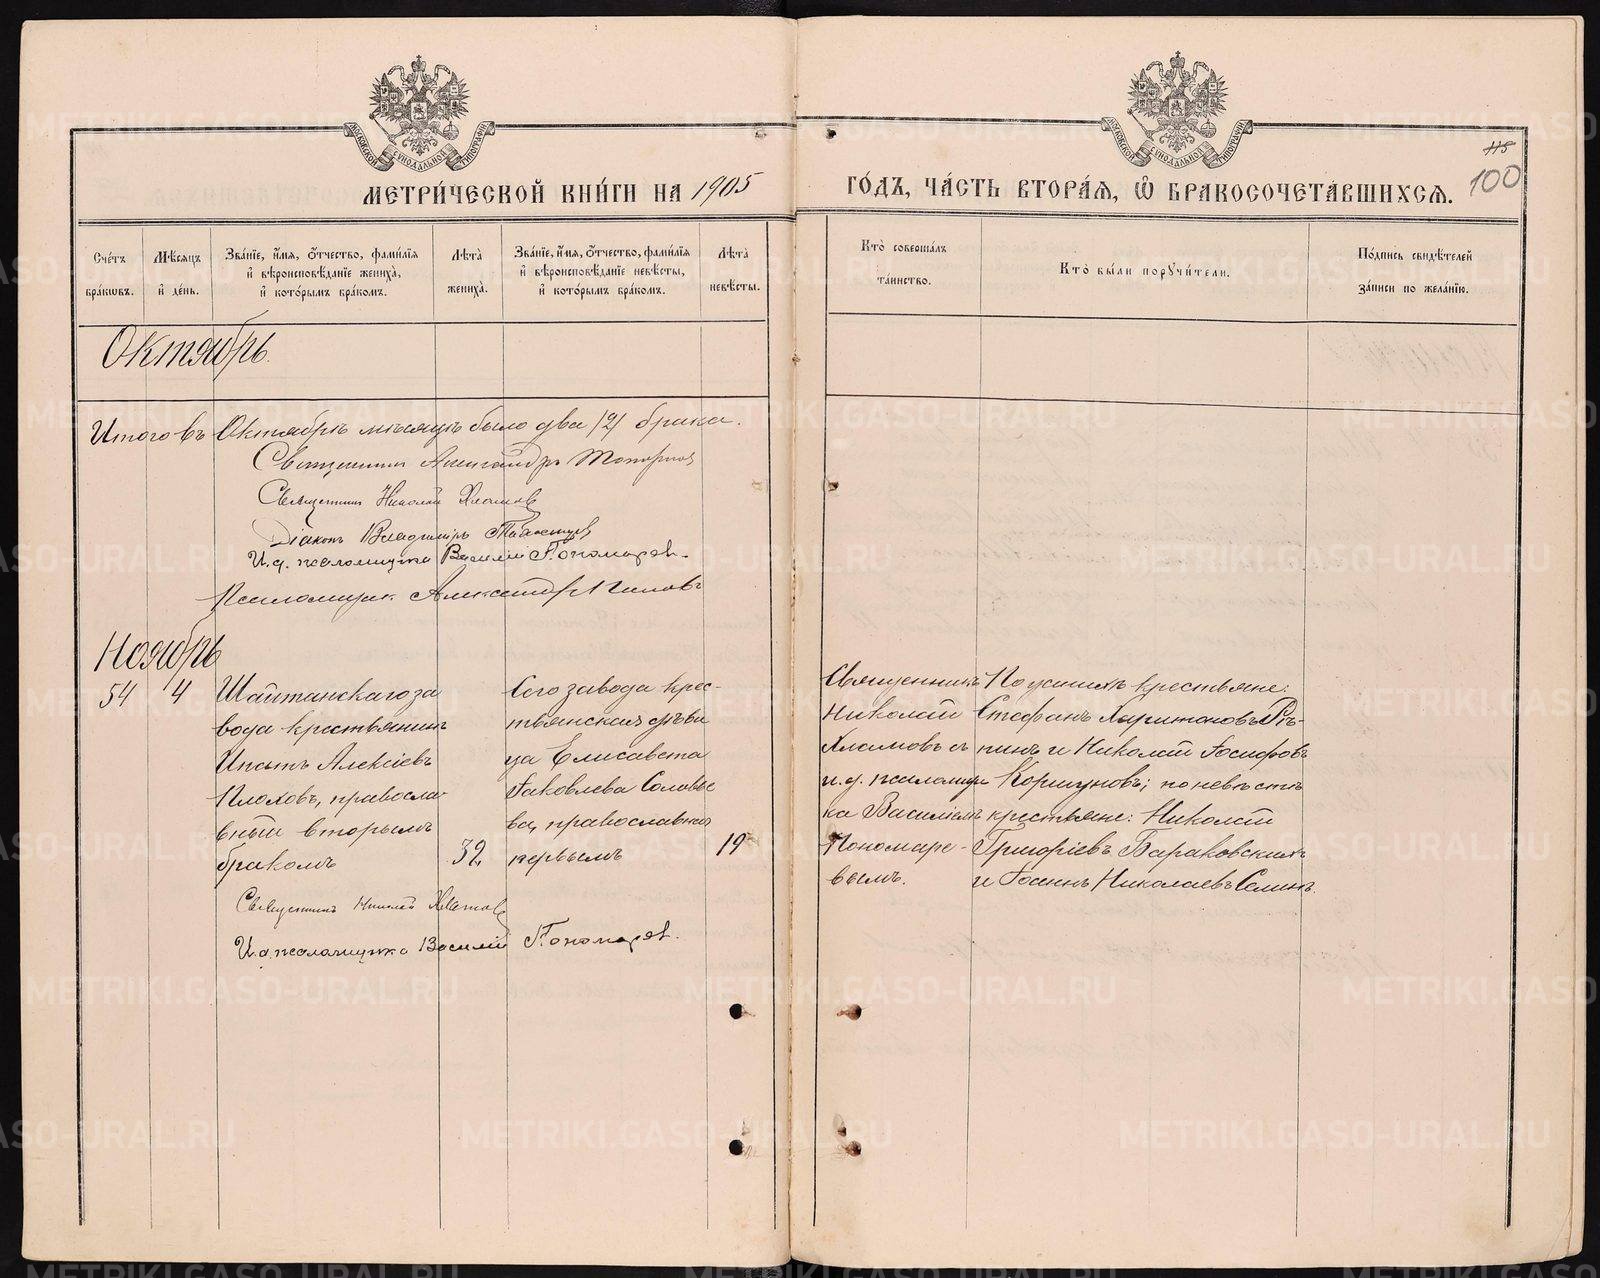 МЕТРИ́ЧЕСКОЙ КНИ́ГИ НА 1905
ГО́ДЪ, ЧА́СТЬ ВТОРА́Я, Ѽ БРАКОСОЧЕТА́ВШИХСЯ.
115
100
МОСКОВСКОЙ СѴНОДАЛЬНОЙ ТИПОГРАФІИ
МОСКОВСКОЙ СѴНОДАЛЬНОЙ ТИПОГРАФІИ
Сче́тъ бра́кѡвъ.
Мѣ́сяцъ и҆ де́нь.
Зва́нїе, и҆́мя, ѻ҆́тчество, фами́лїя и҆ вѣроисповѣ́данїе жениха̀, и҆ кото́рымъ бра́комъ.
Лѣ́та жениха̀.
Зва́нїе, и҆́мя, ѻ҆́тчество, фами́лїя и҆ вѣроисповѣ́данїе невѣ́сты, и҆ кото́рымъ бра́комъ.
Лѣ́та невѣ́сты.
Кто̀ соверша́лъ та́инство.
Кто̀ бы́ли поручи́тели.
По́дпись свидѣ́телей за́писи по жела́нїю.
Октябрь.
Итого въ Октябрѣ мѣсяцѣ было два /2/ брака.
Священникъ Александръ Топорковъ
Священникъ Николай Хламовъ
Діаконъ Владиміръ
И.д. псаломщика Василій Пономаревъ
Псаломщик Александръ Поповъ
Ноябрь
54 4
Шайтанскаго за
вода крестьянинъ
Ипатъ Алексіевъ
Плоховъ, правосла-
вный вторымъ
бракомъ 32
Сего завода крес-
тьянская дѣви
ца Елисавета
Іаковлева Соловье
ва, православная
первымъ 19
Священникъ
Николай
Хламовъ съ
и.д. псаломщи
ка Василіемъ
Пономаре-
вымъ.
По женихѣ крестьяне:
Стефанъ Харитоновъ Рѣ-
пинъ и Николай Іосифовъ
Коршуновъ; по невѣстѣ
крестьяне: Николай
Григоріевъ Бараковскихъ
и Іоаннъ Николаевъ Селинъ.
Священникъ Николай Хламовъ
И.д. псаломщика Василій Пономаревъ.
METRIKI.GASO-URAL.RU